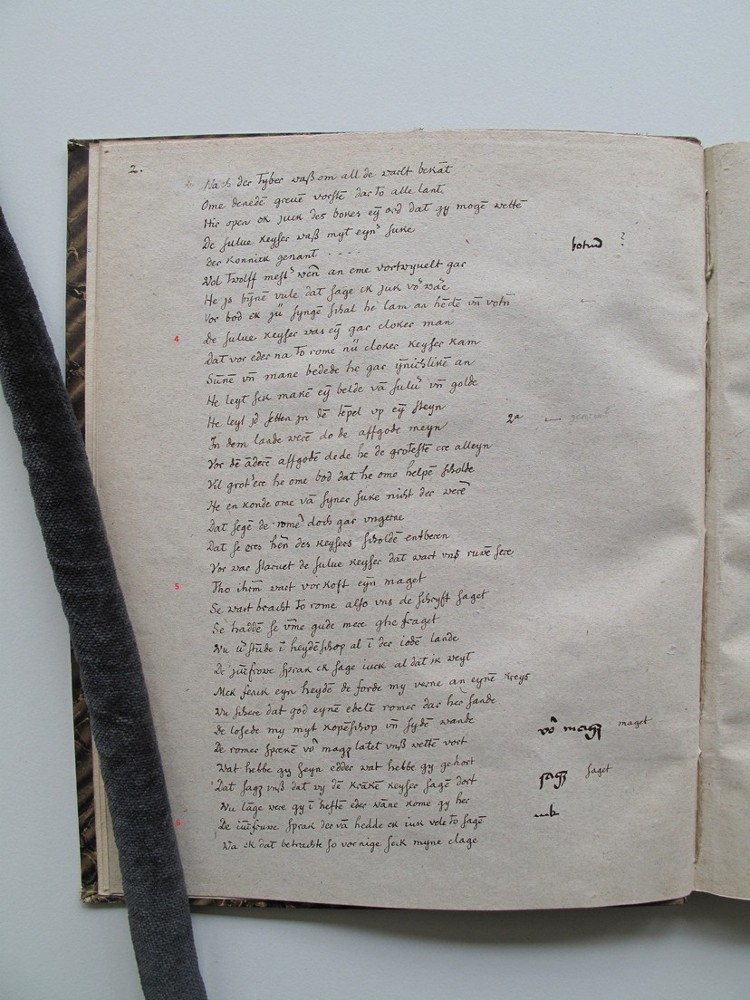 2.
Nach der Tyber waß om all de warlt bekāt
Ome denedē greuē vorstē dar to alle lant
Hir open ek juck des bokes eȳ ord dat gy mogē wettē
De sulue keyser waß myt eynʳ suke
botud ?
der konnick genant - - - -
Wol twolff mestʳ wērī an eme vortwyuelt gar
He js bȳnē vule dat sage ik juk vōʳ wāe
Vor bod ek jū synge schal he lam an hēdē vn̄ votn̄
4 De sulue keyser was eȳ gar cloker man
Dat vor eder na to rome nū cloker keyser kam
Sūnē vn̄ mane bedede he gar ȳnichlikē an
He leyt sik makē eȳ belde vā suluʳ vn̄ golde
He leyt jd setten jn dē tēpel vp eȳ steyn
In dem lande werē do de affgode meyn
2a
Vor dē āderē affgodē dede he de grotestē ere alleyn
Vil grotʳere he ome bod dat he ome helpē scholde
He en konde ome vā syner suke nicht der werē
Dat segē de romeʳ doch gar vngerne
Dat se eres hēn des keysers scholdē entberen
Vor war staruet de sulue keyser dat wart vnß ruwē sere
5 Tho ihrlm̄ wart vorkoft eyn maget
Se wart bracht to rome also vns de schryft saget
Se haddē se vm̄e gude mere ghe fraget
Nu wʳstude ī heydēschop al ī der iodē lande
De jūcfrowe sprak ek sage iuck al dat ik weyt
Mek ferik eyn heydē de forde my verne an eynē kreys
Nu schere dat god eynē edelē romer dar her sande
De losede my myt kopēschop vn̄ sydē wande
De romer spekē vōʳ magz latet vnß wettē vort
vōʳ magz maget
Wat hebbe gy seyn edder wat hebbe gy gehort
Dat sagz vnß dat wy dē krākē keyser sagē dort
sagz saget
Nu lāge were gy ī heftē eder wāne kome gy her
6 De iūcfruwe sprak der vā hedde ek iuk vele to sagē
Na ek dat betrachte so vornige sick myne clage